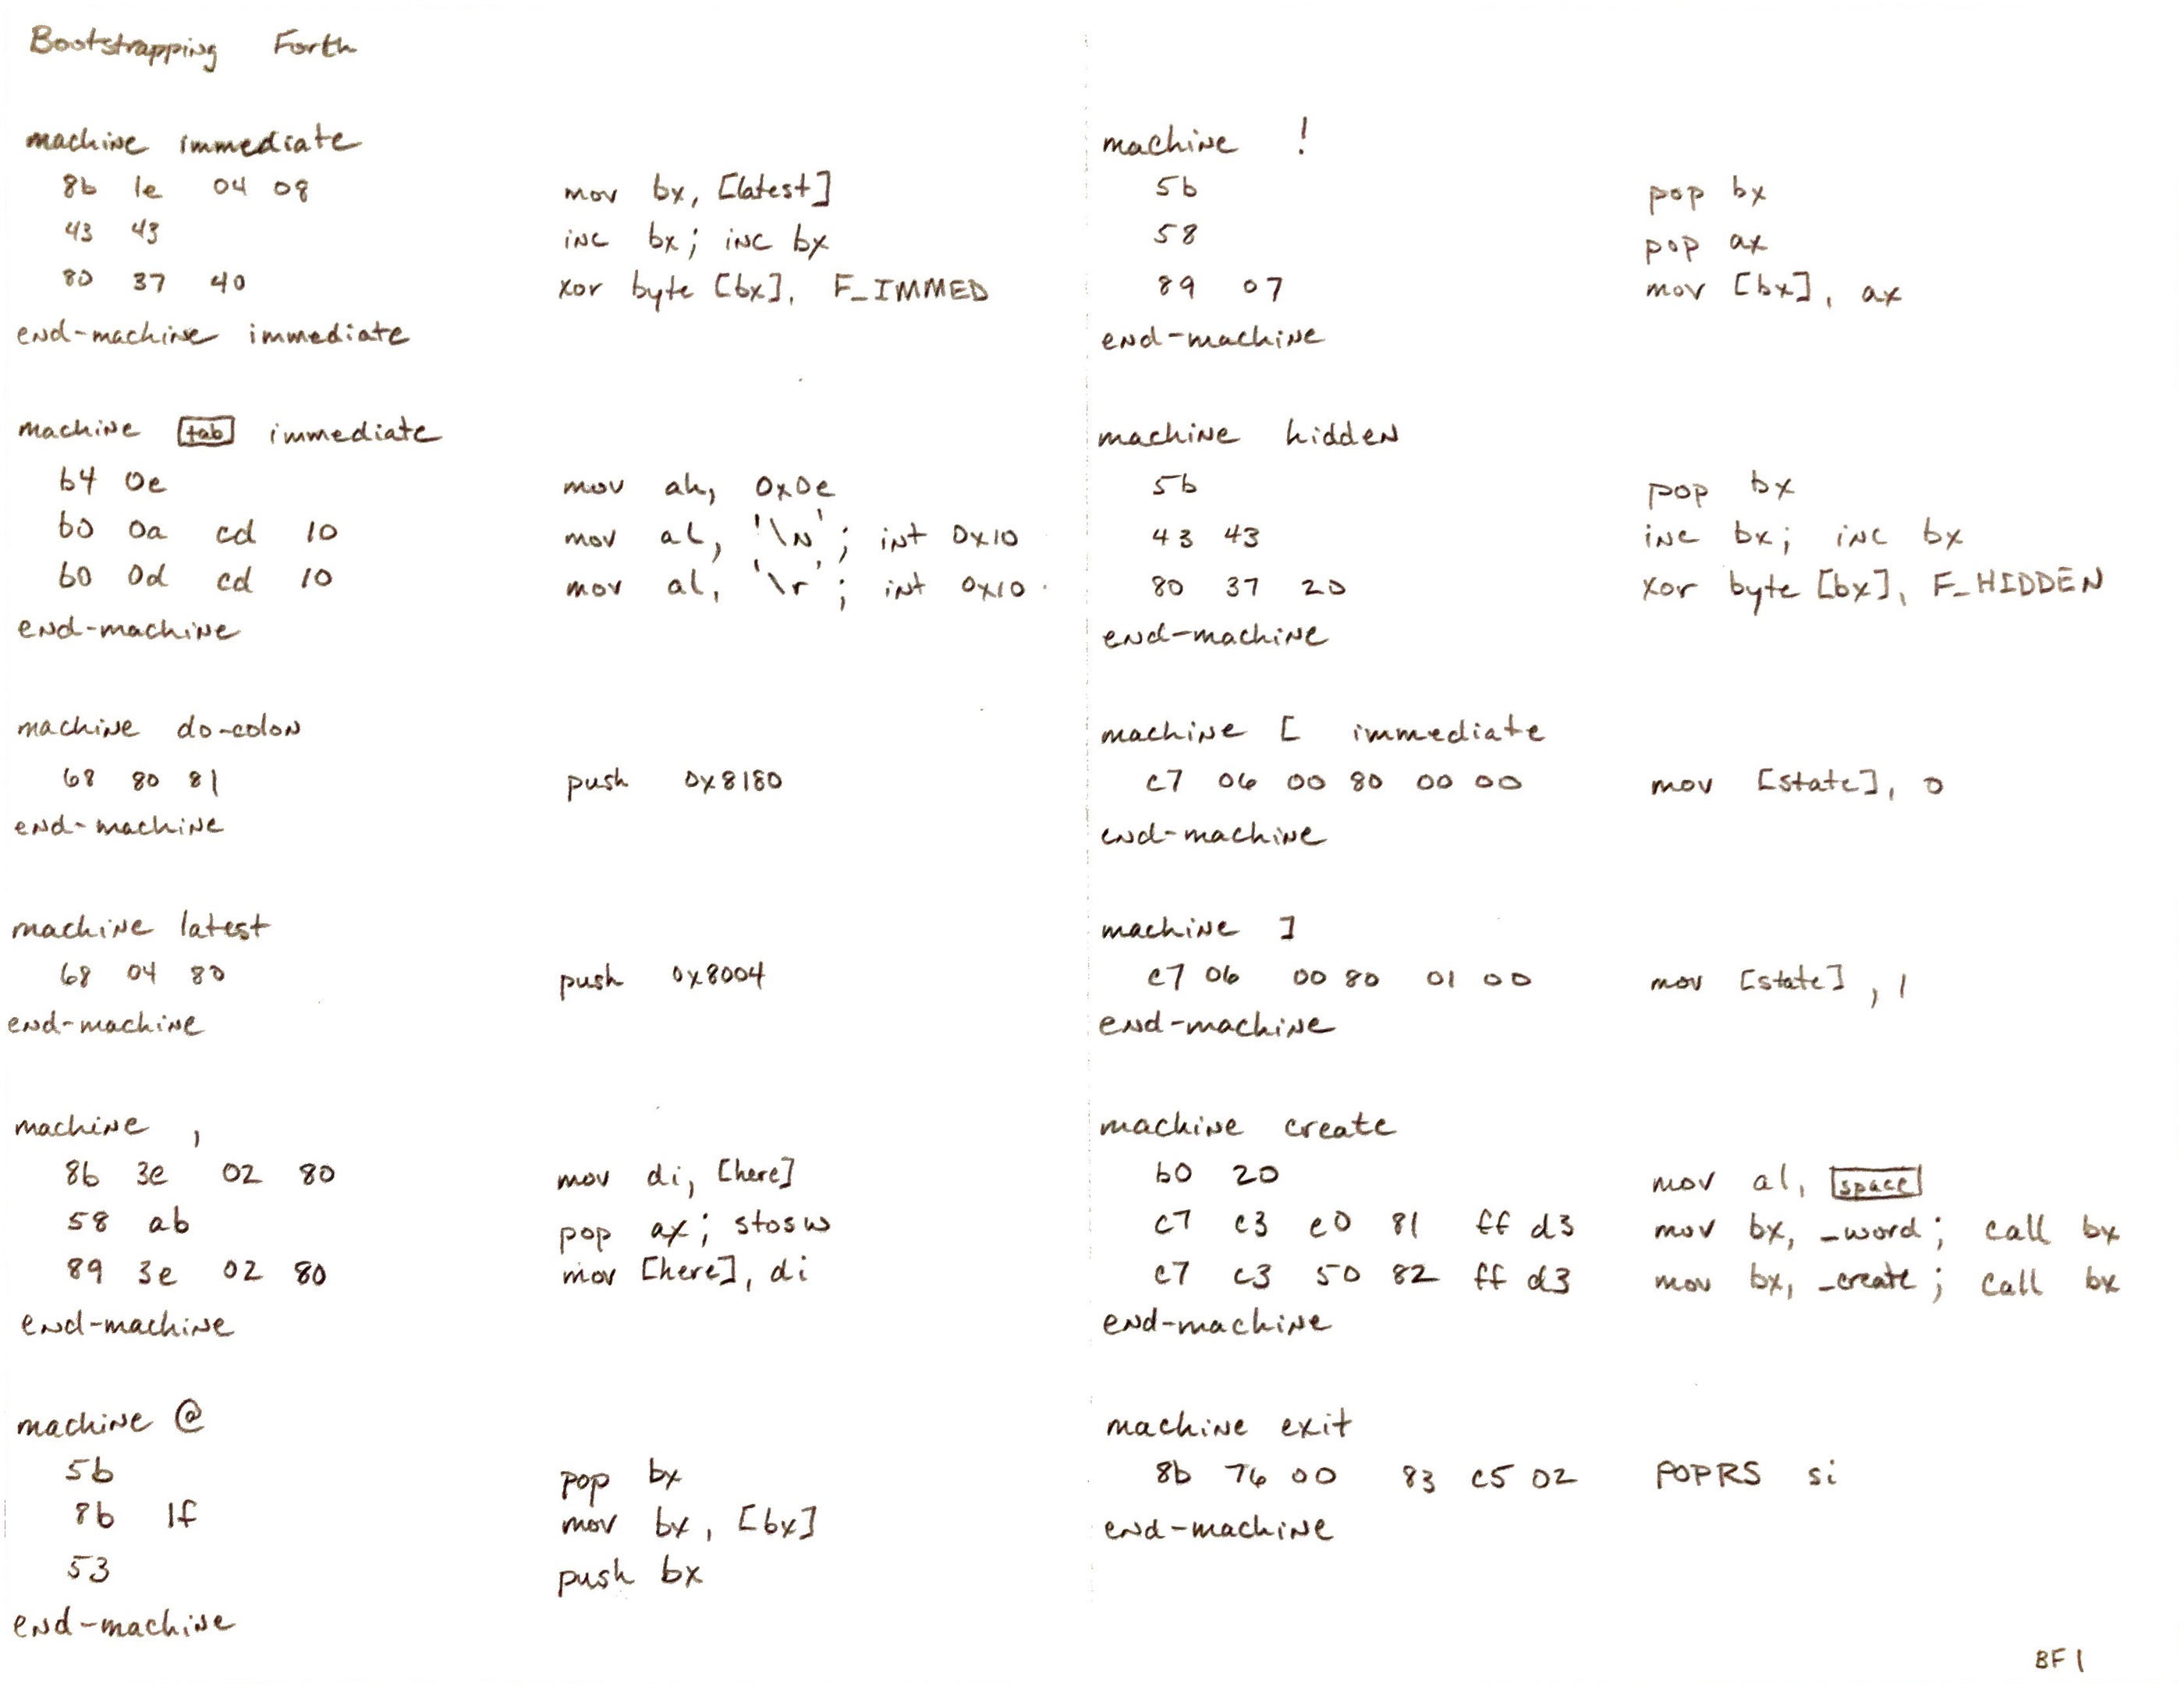 Bootstrapping Forth
machine immediate
8b 1e 04 08 mov bx, [latest]
43 43 inc bx; inc bx
80 37 40 xor byte [bx], F_IMMED
end-machine immediate
machine tab immediate
b4 0e mov ah, 0x0e
b0 0a cd 10 mov al, '\n'; int 0x10
b0 0d cd 10 mov al, '\r'; int 0x10
end-machine
machine do-colon
68 80 81 push 0x8180
end-machine
machine latest
68 04 80 push 0x8004
end-machine
machine ,
8b 3e 02 80 mov di, [here]
58 ab pop ax; stosw
89 3e 02 80 mov [here], di
end-machine
machine @
5b pop bx
8b 1f mov bx, [bx]
53 push bx
end-machine
machine !
5b pop bx
58 pop ax
89 07 mov [bx], ax
end-machine
machine hidden
5b pop bx
43 43 inc bx; inc bx
80 37 20 xor byte [bx], F_HIDDEN
end-machine
machine [ immediate
c7 06 00 80 00 00 mov [state], 0
end-machine
machine ]
c7 06 00 80 01 00 mov [state], 1
end-machine
machine create
b0 20 mov al, space
c7 c3 e0 81 ff d3 mov bx, _word; call bx
c7 c3 50 82 ff d3 mov bx, _create; call bx
end-machine
machine exit
8b 76 00 83 c5 02 POPRS si
end-machine
BF1